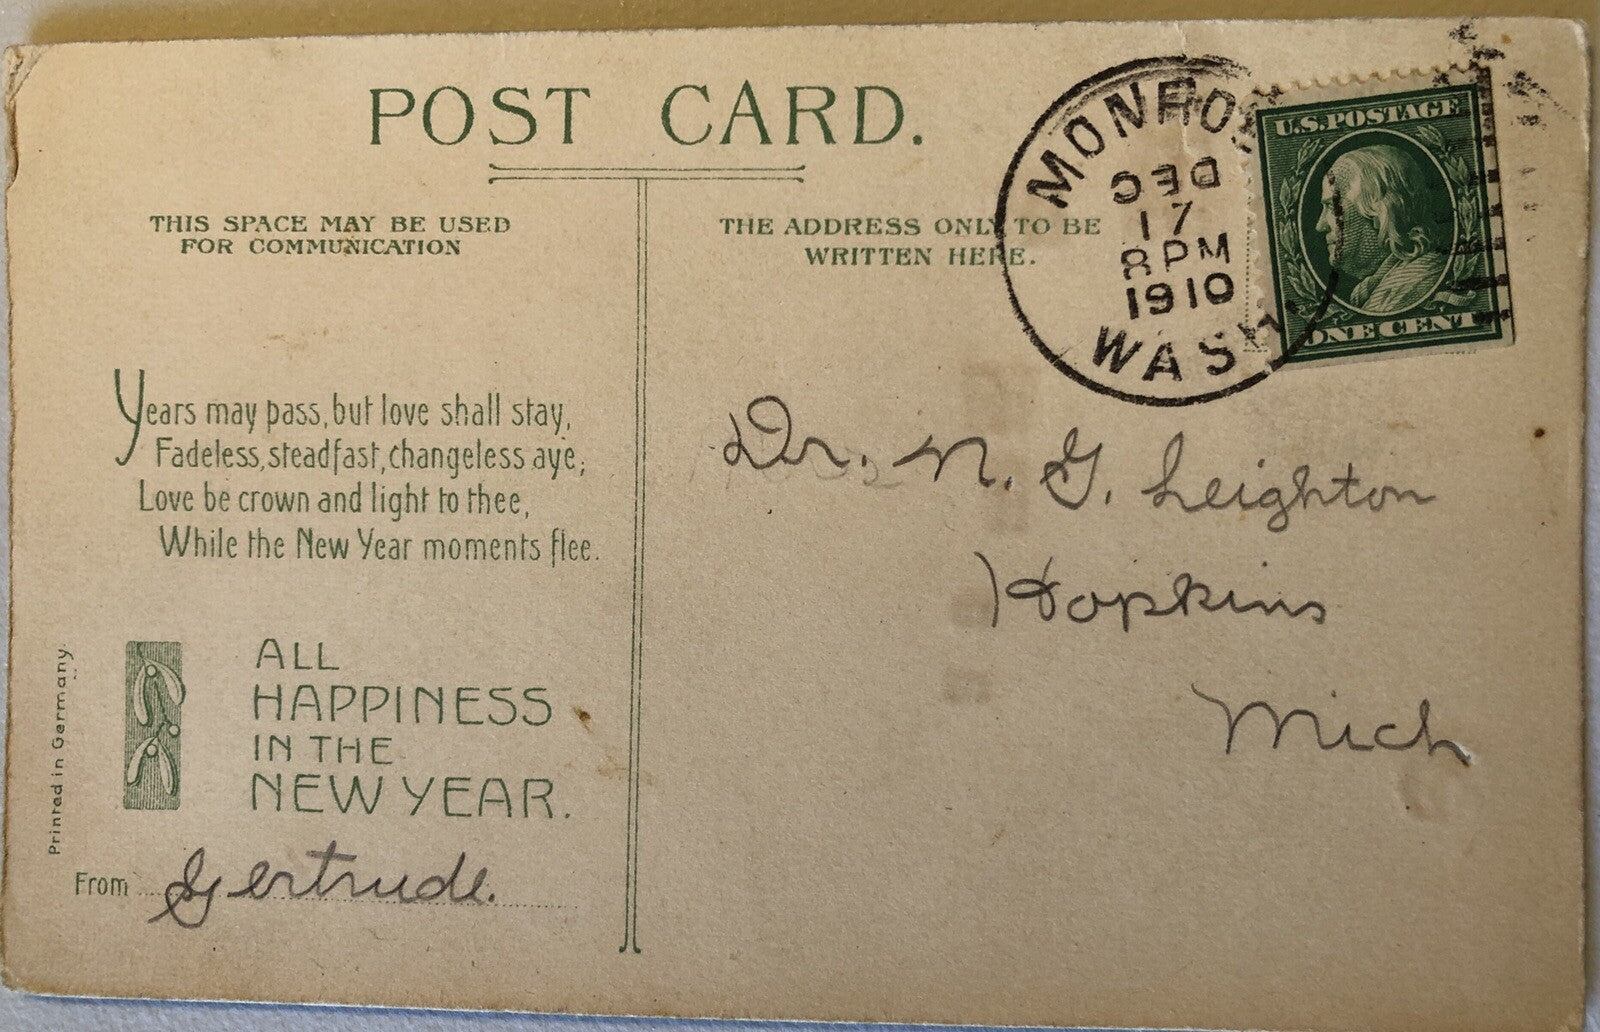 POST CARD.
THIS SPACE MAY BE USED
FOR COMMUNICATION
THE ADDRESS ONLY TO BE
WRITTEN HERE.
MONROE
DEC
17
8 PM
1910
WASH.
U.S. POSTAGE
ONE CENT
Years may pass, but love shall stay,
Fadeless, steadfast, changeless aye;
Love be crown and light to thee,
While the New Year moments flee.
Dr. N. G. Leighton
Hopkins
Mich
ALL
HAPPINESS
IN THE
NEW YEAR.
From Gertrude.
Printed in Germany.